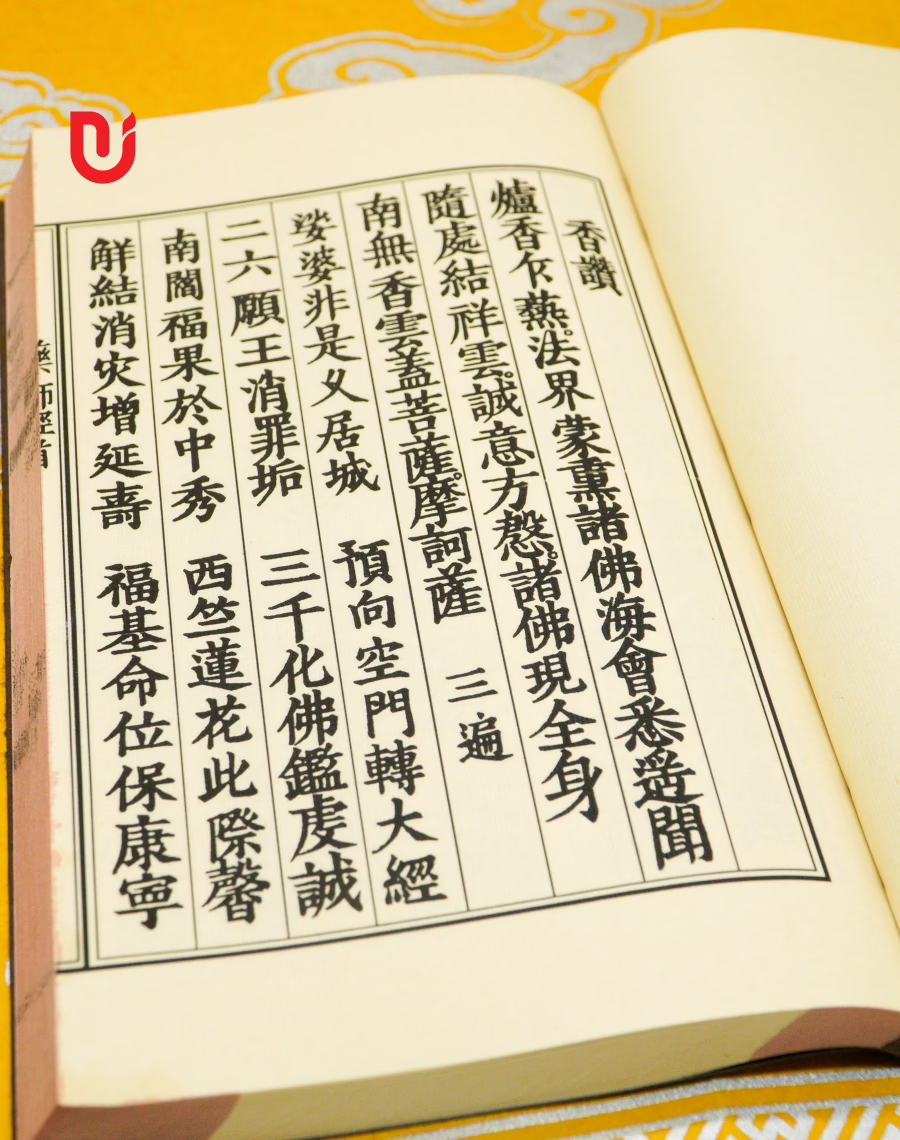 香讚
爐香乍爇。法界蒙熏諸佛海會悉遙聞
隨處結祥雲。誠意方慇。諸佛現全身
南無香雲盖菩薩。摩訶薩 三遍
娑婆非是乆居城 預向空門轉大經
二六願王消罪垢 三千化佛鑑虔誠
南閻福果於中秀 西竺蓮花此際馨
解結消灾增延壽 福基命位保康寧
藥師經首